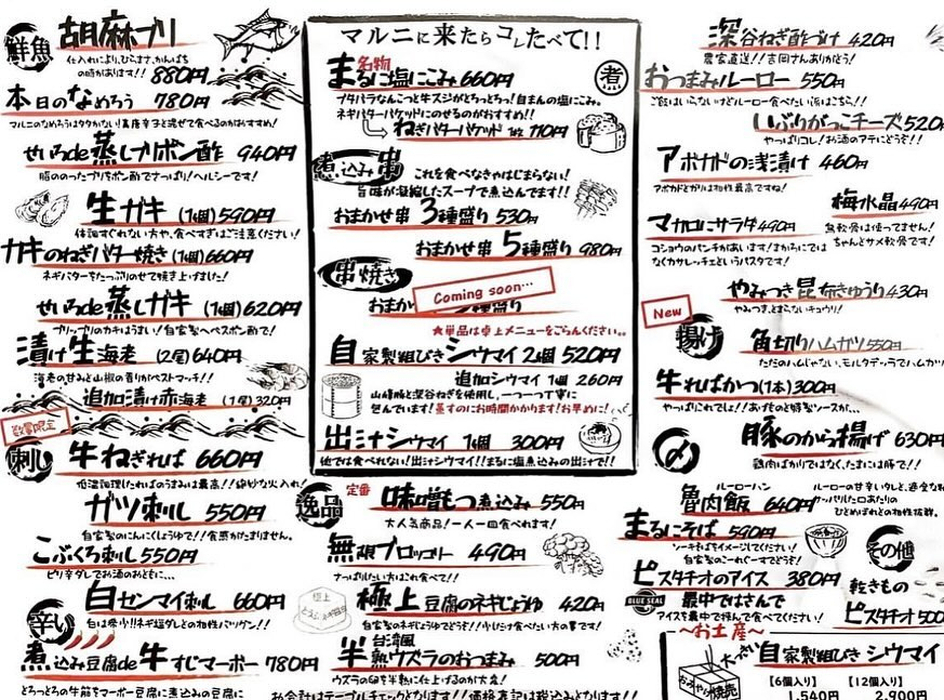 鮮魚
胡麻ブリ
仕入れにより、ひらまさ、かんぱち
の時があります!! 880円
本日のなめろう 780円
マルニのなめろうはタタかない!青唐辛子と混ぜて食べるのがおすすめ!
せいろde蒸しブリポン酢 940円
脂ののったブリをポン酢でさっぱり!ヘルシーです!
生ガキ (1個)590円
体調すぐれない方や、食べすぎはご注意ください!
カキのねぎバター焼き(1個)660円
ネギバターをたっぷりのせて焼き上げました!
せいろde蒸しガキ (1個)620円
プリップリのカキはうまい!自家製へべスポン酢で!
漬け生海老 (2尾)640円
海老の甘みと山椒の香りがベストマッチ!!
追加漬け赤海老 (1尾)320円
数量限定
刺し
牛ねぎれば 660円
低温調理したればのうまみは最高!!絶妙な火入れ!
ガツ刺し 550円
自家製のにんにくじょうゆで!!食感がたまりません。
こぶくろ刺し 550円
ピリ辛ダレでお酒のおともに...
白センマイ刺し 660円
白は希少!!ネギ塩ダレとの相性バツグン!!
辛い
煮込み豆腐de牛すじマーボー 780円
とろっとろの牛筋をマーボー豆腐に煮込みの豆腐に
マルニに来たらコレたべて!!
名物
まるに塩にこみ 660円
煮
ブタバラなんこつと牛スジがとろっとろ!自まんの塩にこみ。
ネギバターバケットにのせるのがおすすめ!!
ねぎバターバケット 1枚 110円
煮込み串
これを食べなきゃはじまらない!
旨味が凝縮したスープで煮込んでます!!
おまかせ串 3種盛り 530円
おまかせ串 5種盛り 980円
串焼き
Coming soon…
おまか
盛り
★単品は卓上メニューをごらんください。
自家製粗びきシウマイ 2個 520円
追加シウマイ 1個 260円
山形豚と深谷ねぎを使用し、一つ一つ丁寧に
包んでいます!蒸すのにお時間かかります!お早めに!
出汁シウマイ 1個 300円
他では食べれない!出汁シウマイ!!まるに塩煮込みの出汁で!!
逸品
定番
味噌もつ煮込み 550円
大人気商品!一人一皿食べれます!
無限ブロッコリー 490円
さっぱりしたい方はこれ食べて!!
極上
とうふ
極上豆腐のネギじょうゆ 420円
自家製のネギじょうゆでどうぞ!!少しだけ食べたい方の夢です!
台湾風
半熟ウズラのおつまみ 500円
ウズラの卵を半熟に仕上げるのが大変!
お会計はテーブルチェックとなります!!価格表記は税込みとなります!!
深谷ねぎ酢づけ 420円
農家直送!!吉岡さんありがとう!
おつまみルーロー 550円
ご飯はいらないけどルーロー食べたい派はこちら!!
いぶりがっこチーズ520
やっぱりコレ!お酒のアテにどうぞ!!
アボカドの浅漬け 460円
アボカドとガリは相性最高ですね!
梅水晶 490円
鶏軟骨は使ってません!
ちゃんとサメ軟骨です!
マカロニサラダ 490円
コショウのパンチがあいます!まかろにでは
なくカサレッチェというパスタです!
やみつき昆布きゅうり 430円
やみつき、とまらないキュウリ!
New
揚げ
角切りハムカツ 550円
ただのハムじゃない、モルタデッラでハムカツ
牛ればかつ(1本)300円
やっぱりこれでしょ!!あげものと特製ソースが...
豚のから揚げ 630円
鶏肉ばかりではなく、たまには豚で!!
〆
ルーローハン
魯肉飯 640円
ルーローの甘辛いタレと、適度な
サッパリした口あたりの
ひとめぼれとの相性抜群。
まるにそば 590円
ソーキそばをイメージしてください!
自家製のこーれぐーすでどうぞ!
その他
ピスタチオのアイス 380円
BLUE SEAL
最中ではさんで
アイスを最中で挟んで食べてください!
乾きもの
ピスタチオ 500
〜お土産〜
自家製粗びきシウマイ
おみやげ焼売
【6個入り】
1,540円
【12個入り】
2,900円